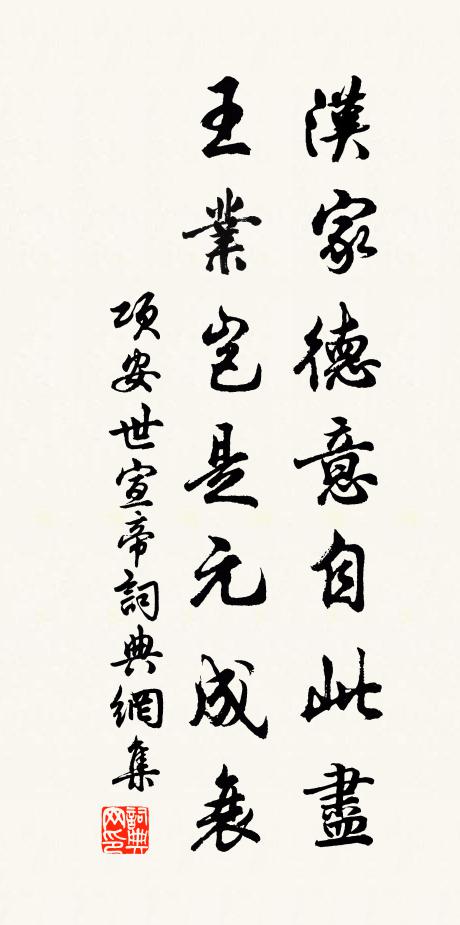 漢家德意自此盡
王業豈是元成衰
項安世宣帝詞典網集
詞典网印